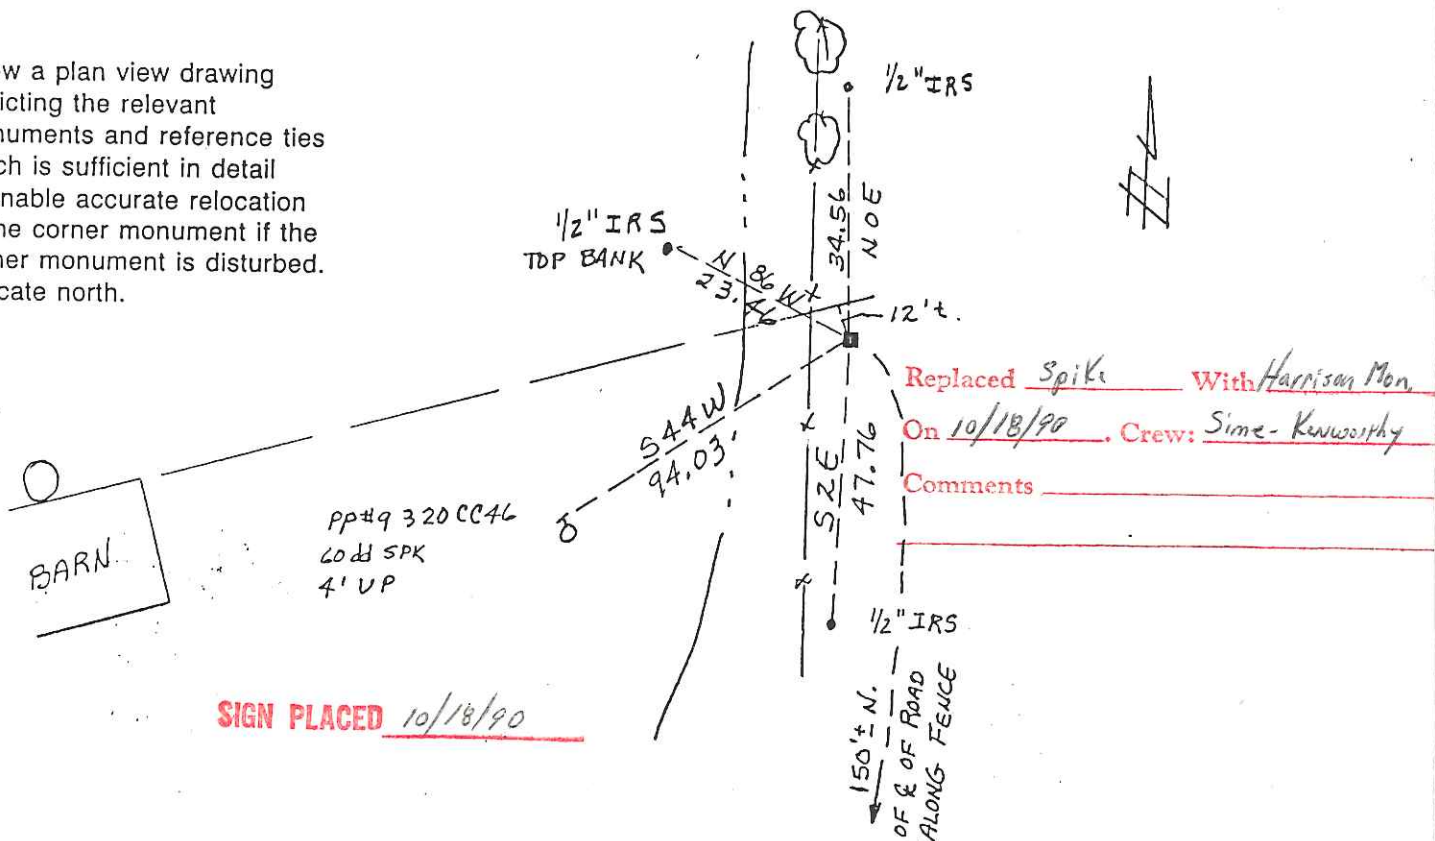 w a plan view drawing
icting the relevant
numents and reference ties
ch is sufficient in detail
nable accurate relocation
he corner monument if the
ner monument is disturbed.
cate north.
1/2" IRS
1/2" IRS
TOP BANK
N 86 W
23.46
34.56
N O E
12't.
Replaced Spike With Harrison Mon.
On 10/18/90. Crew: Sime-Kenworthy
Comments
S44W
94.03'
S2E
47.76
PP#9 320 CC46
60dd SPK
4' UP
BARN
1/2" IRS
SIGN PLACED 10/18/90
150'± N.
OF ℄ OF ROAD
ALONG FENCE